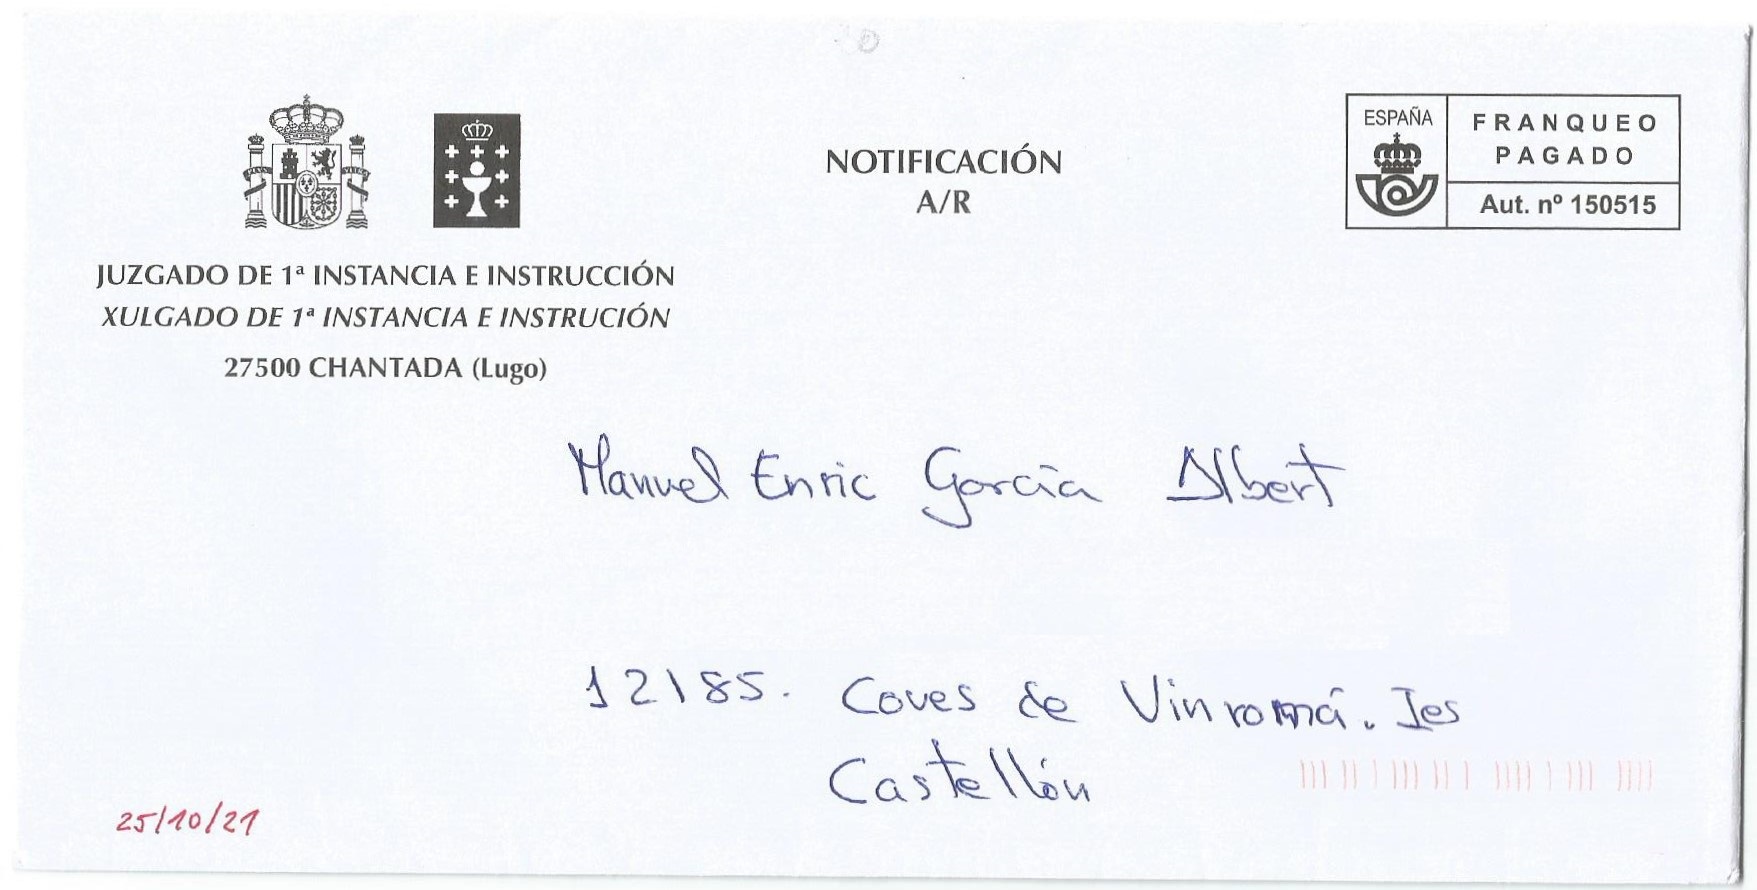 NOTIFICACIÓN
A/R
ESPAÑA
FRANQUEO
PAGADO
Aut. nº 150515
JUZGADO DE 1ª INSTANCIA E INSTRUCCIÓN
XULGADO DE 1ª INSTANCIA E INSTRUCIÓN
27500 CHANTADA (Lugo)
Manuel Enric García Albert
12185. Coves de Vinromá. Les
Castellón
25/10/21